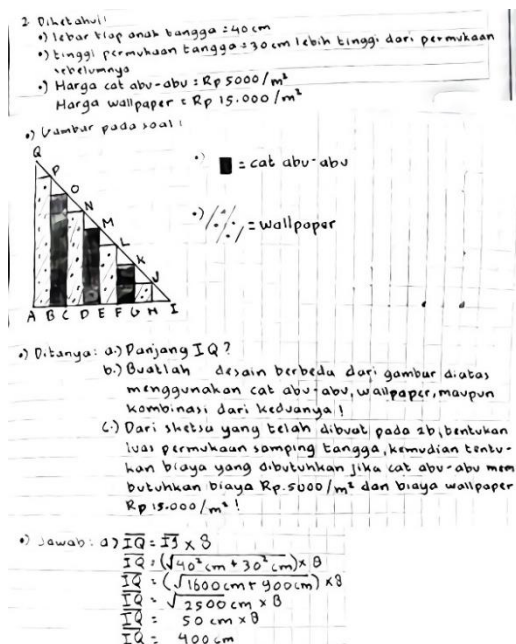 2 Diketahui!
•) lebar tiap anak tangga = 40 cm
•) tinggi permukaan tangga = 30 cm lebih tinggi dari permukaan
sebelumnya
•) Harga cat abu-abu = Rp 5000/m²
Harga wallpaper = Rp 15.000/m²
•) Gambar pada soal!
Q
P
O
N
M
L
K
J
A B C D E F G H I
•) = cat abu-abu
•) = wallpaper
•) Ditanya: a.) Panjang IQ?
b.) Buatlah desain berbeda dari gambar diatas
menggunakan cat abu-abu, wallpaper, maupun
kombinasi dari keduanya!
C.) Dari sketsa yang telah dibuat pada 2b, tentukan
luas permukaan samping tangga, kemudian tentu-
kan biaya yang dibutuhkan jika cat abu-abu mem
butuhkan biaya Rp.5000/m² dan biaya wallpaper
Rp 15.000/m²!
•) Jawab: a) IQ = IJ x 8
IQ = (√40² cm + 30² cm) x 8
IQ = (√1600 cm + 900 cm) x 8
IQ = √2500 cm x 8
IQ = 50 cm x 8
IQ = 400 cm